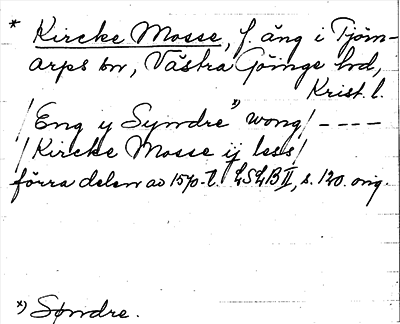 * Kircke Mosse, f. äng i Tjörn-
arps sn, Västra Göinge hd,
Krist. l.
/Eng y Syndre *) wong/ - - - -
/Kircke Mosse ij less/
förra delen av 1570-t. LSLB II, s. 120. orig.
*) Søndre.